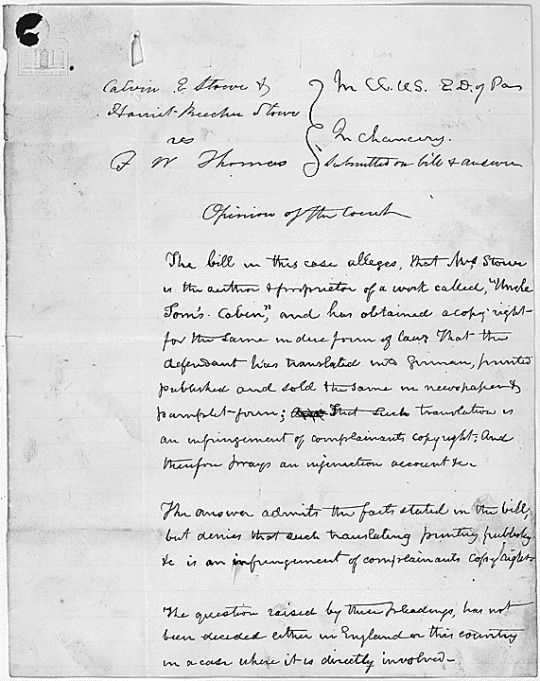 Calvin E. Stowe &
Harriet Beecher Stowe
vs
F W Thomas
In CC. U.S. E.D. of Pa
In Chancery.
Submitted on bill & answer
Opinion of the Court
The bill in this case alleges, that Mrs Stowe
is the author & proprietor of a work called, "Uncle
Tom's Cabin," and has obtained a copy right
for the same in due form of law. That the
defendant has translated into German, printed
published and sold the same in newspaper &
pamphlet-form; that such translation is
an infringement of complainants copyright. And
therefore prays an injunction account &c.
The answer admits the facts stated in the bill,
but denies that such translating printing publishg
&c is an infringement of complainants copy right.
The question raised by these pleadings, has not
been decided either in England or this country
in a case where it is directly involved.